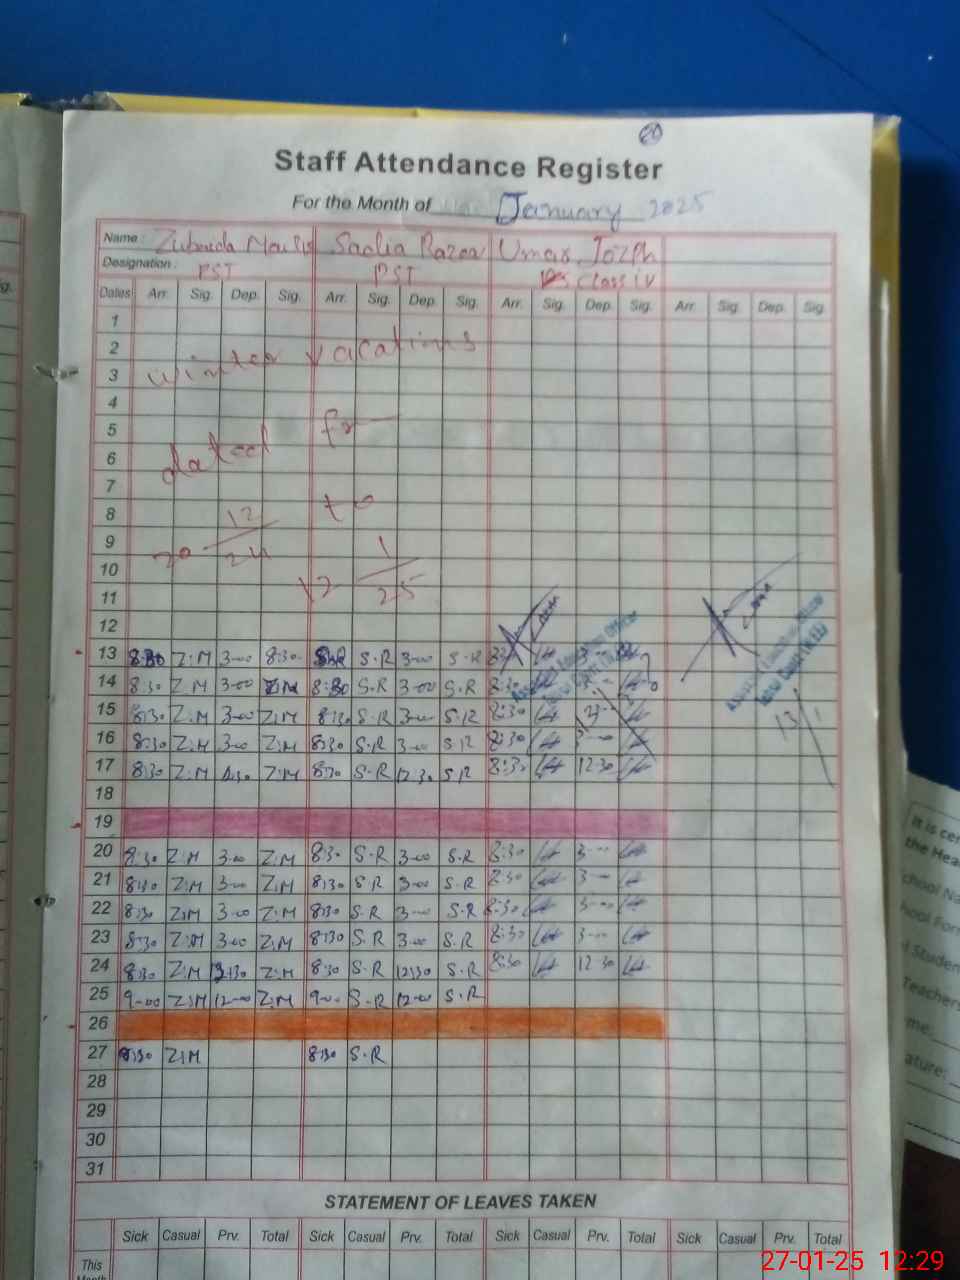 20
Staff Attendance Register
For the Month of January 2025
Name: Zubaida Sadia Umar Jozph
Designation: PST PST Class iv
Dates Arr. Sig. Dep. Sig. Arr. Sig. Dep. Sig. Arr. Sig. Dep. Sig. Arr. Sig. Dep. Sig.
1
2 winter vacations
3
4
5
6 dated
7
8 12 to
9 20 24 1
10 12 25
11
12
13 8:30 Z.M 3-00 8:30 S.R 3-00 S.R
14 8:30 Z.M 3-00 Z.M 8:30 S.R 3-00 S.R 8:30
15 8:30 Z.M 3-00 Z.M 8:30 S.R 3-00 S.R 8:30
16 8:30 Z.M 3-00 Z.M 8:30 S.R 3-00 S.R 8:30 3-00
17 8:30 Z.M Z.M 8:30 S.R 12:30 S.R 8:30 12-30
13/1
18
19
20 8:30 Z.M 3-00 Z.M 8:30 S.R 3-00 S.R 8:30 3-00
21 8:30 Z.M 3-00 Z.M 8:30 S.R 3-00 S.R 8:30 3-00
22 8:30 Z.M 3-00 Z.M 8:30 S.R 3-00 S.R 8:30 3-00
23 8:30 Z.M 3-00 Z.M 8:30 S.R 3-00 S.R 8:30 3-00
24 8:30 Z.M 12:30 Z.M 8:30 S.R 12:30 S.R 8:30 12-30
25 9-00 Z.M 12-00 Z.M 9-00 S.R 12-00 S.R
26
27 8:30 Z.M 8:30 S.R
28
29
30
31
STATEMENT OF LEAVES TAKEN
Sick Casual Prv. Total Sick Casual Prv. Total Sick Casual Prv. Total Sick Casual Prv. Total
This
Month
It is cer
the Hea
chool Na
hool For
f Studen
Teachers
me:
ature:
27-01-25 12:29